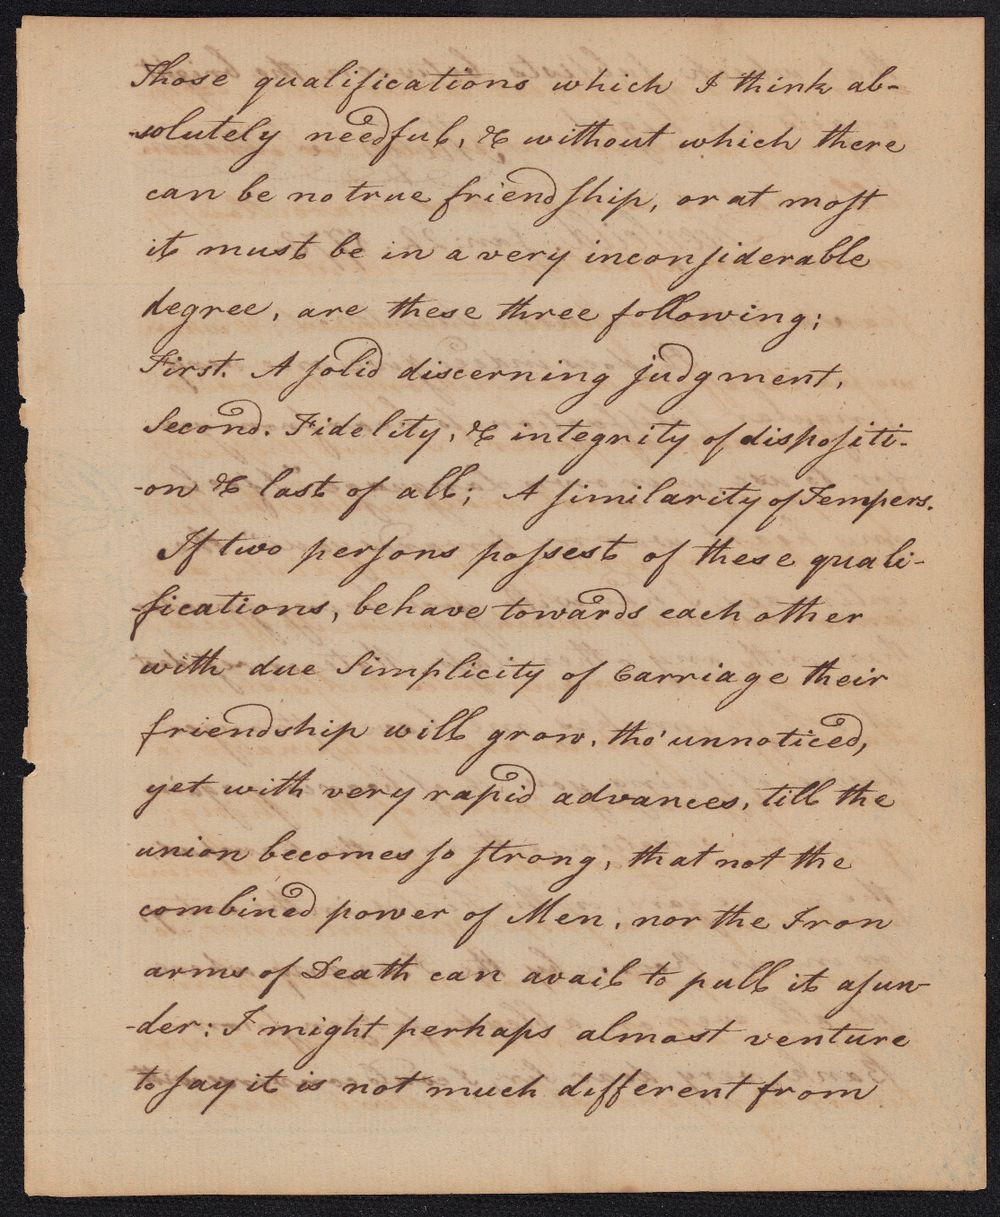 Those qualifications which I think ab-
-solutely needful, & without which there
can be no true friendship, or at most
it must be in a very inconsiderable
degree, are these three following;
First. A solid discerning judgment,
Second. Fidelity, & integrity of dispositi-
-on & last of all; A similarity of Tempers.
If two persons possest of these quali-
-fications, behave towards each other
with due Simplicity of Carriage their
friendship will grow, tho' unnoticed,
yet with very rapid advances, till the
union becomes so strong, that not the
combined power of Men, nor the Iron
arms of Death can avail to pull it asun-
-der: I might perhaps almost venture
to say it is not much different from